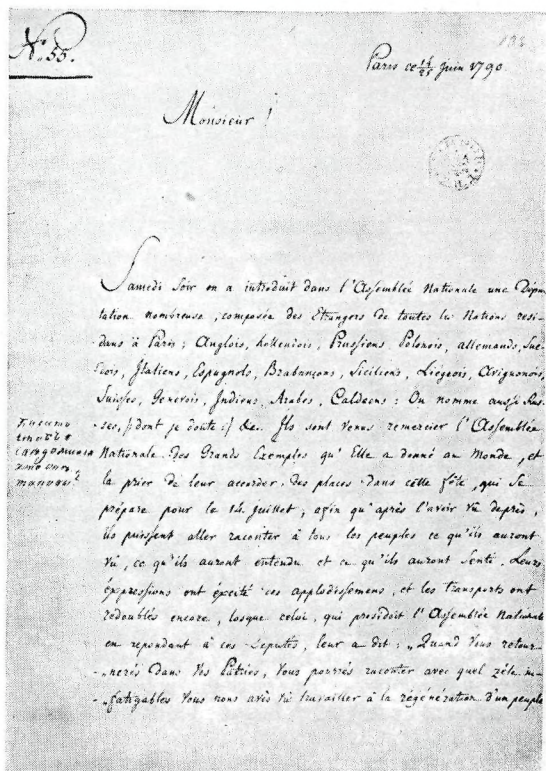 No. 55.
Paris ce 14/25 Juin 1790
Monsieur !
Samedi Soir on a introduit dans l'Assemblée Nationale une Dépu-
tation nombreuse, composée des Etrangers de toutes les Nations resi-
dans à Paris; Anglois, hollendois, Prussiens Polonois, allemands, Sue-
dois, Italiens, Espagnols, Brabançons, Siciliens, Liégeois, Avignonois,
Suisses, Genevois, Indiens, Arabes, Caldaens: On nomme aussi Rus-
ses, /:dont je doute:/ &c. Ils sont venus remercier l'Assemblée
Nationale des Grands Exemples qu'Elle a donné au Monde, et
la prier de leur accorder des places dans cette fête, qui se
prépare pour le 14. Juillet; afin qu'après l'avoir vû depres,
ils puissent aller raconter à tous les peuples ce qu'ils auront
vû, ce qu'ils auront entendu et ce qu'ils auront Senti. Leurs
expressions ont éxcité des applodissemens, et les transports ont
redoublés encore, losque celui, qui présidoit l'Assemblée Nationale
en repondant à ces Députés, leur a dit: „Quand Vous retour-
„nerés Dans Vos Patries, Vous pourrés raconter avec quel zéle in-
„fatigables Vous nous avés vû travailler à la régénération d'un peuple